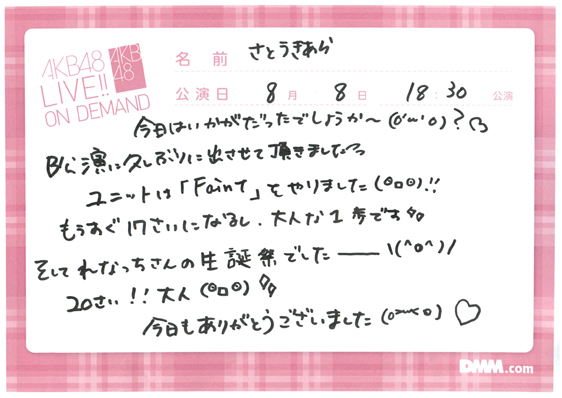 AKB48
LIVE!!
ON DEMAND
AKB
48
名前 さとうきあら
公演日 8月 8日 18:30 公演
今日はいかがだったでしょうか〜(o'ω'o)?♡
B公演に久しぶりに出させて頂きましたっっ
ユニットは「Faint」をやりました(◎□◎)!!
もうすぐ17さいになるし、大人な1歩です
そしてれなっちさんの生誕祭でした——\(^o^)/
20さい!!大人(◎□◎)
今日もありがとうございました(o )♡
DMM.com